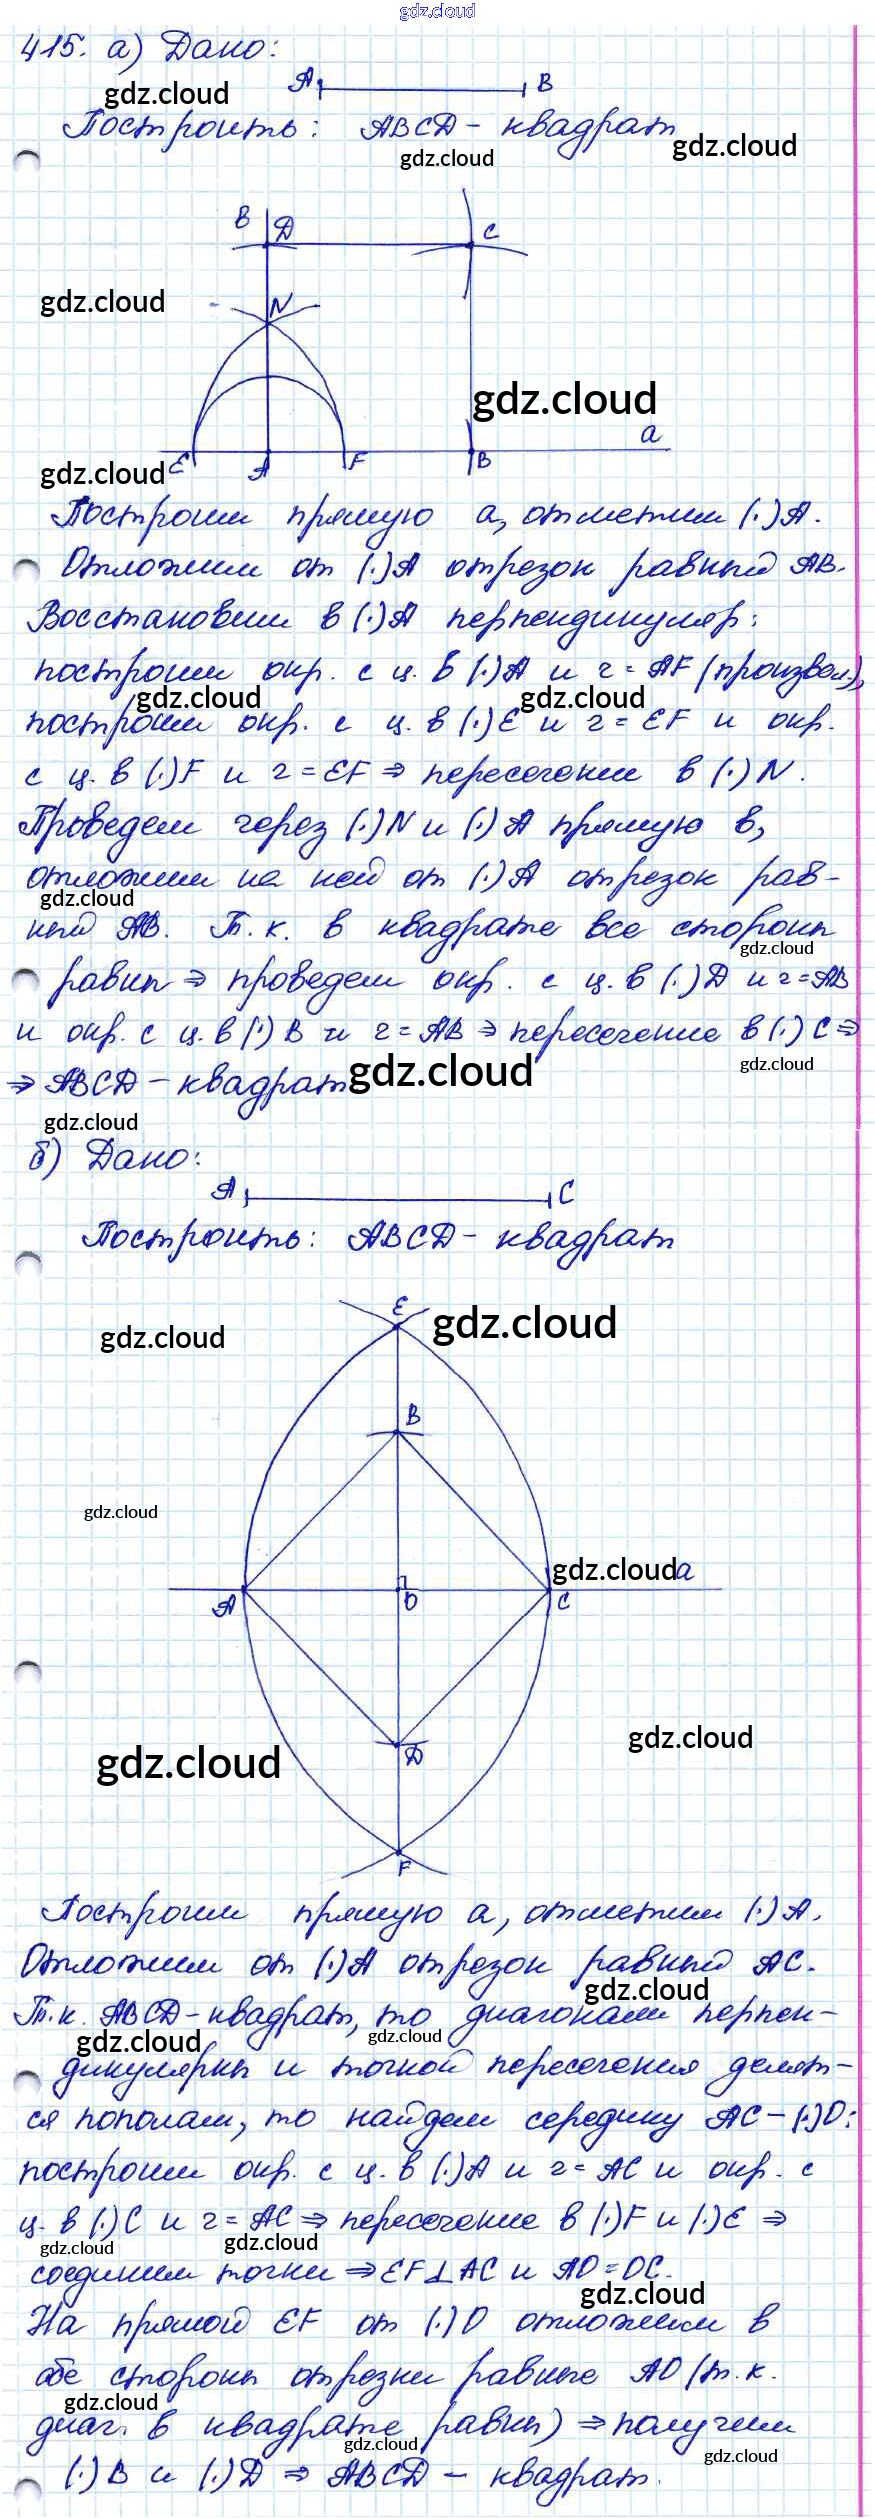 gdz.cloud
415. а) Дано:
A B
gdz.cloud
Построить: ABCD - квадрат
gdz.cloud gdz.cloud
B D C
gdz.cloud N
gdz.cloud
a
gdz.cloud E A F B
Построим прямую a, отметим (.)A.
Отложим от (.)A отрезок равный AB.
Восстановим в (.)A перпендикуляр:
построим окр. с ц. в (.)A и r = AF (произвол.),
gdz.cloud gdz.cloud
построим окр. с ц. в (.)E и r = EF и окр.
с ц. в (.)F и r = EF ⇒ пересечение в (.)N.
Проведем через (.)N и (.)A прямую в,
отложим на ней от (.)A отрезок рав-
gdz.cloud
ный AB. Т.к. в квадрате все стороны
gdz.cloud
равны ⇒ проведем окр. с ц. в (.)D и r = AB
и окр. с ц. в (.)B и r = AB ⇒ пересечение в (.)C ⇒
gdz.cloud
⇒ ABCD - квадрат
gdz.cloud
gdz.cloud
б) Дано:
A C
Построить: ABCD - квадрат
E
gdz.cloud gdz.cloud
B
gdz.cloud
gdz.cloud a
A O C
gdz.cloud
gdz.cloud
D
F
Построим прямую a, отметим (.)A.
Отложим от (.)A отрезок равный AC.
gdz.cloud
Т.к. ABCD - квадрат, то диагонали перпен-
gdz.cloud gdz.cloud
дикулярны и точкой пересечения делят-
ся пополам, то найдем середину AC - (.)O:
построим окр. с ц. в (.)A и r = AC и окр. с
ц. в (.)C и r = AC ⇒ пересечение в (.)F и (.)E ⇒
gdz.cloud gdz.cloud
соединим точки ⇒ EF⊥AC и AO = OC.
gdz.cloud
На прямой EF от (.)O отложим в
обе стороны отрезки равные AO (т.к.
gdz.cloud
диаг. в квадрате равны) ⇒ получим
gdz.cloud gdz.cloud
(.)B и (.)D ⇒ ABCD - квадрат.